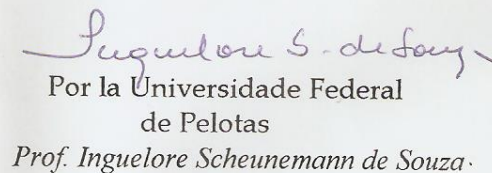 Inguelore S. de Souza
Por la Universidade Federal
de Pelotas
Prof. Inguelore Scheunemann de Souza.